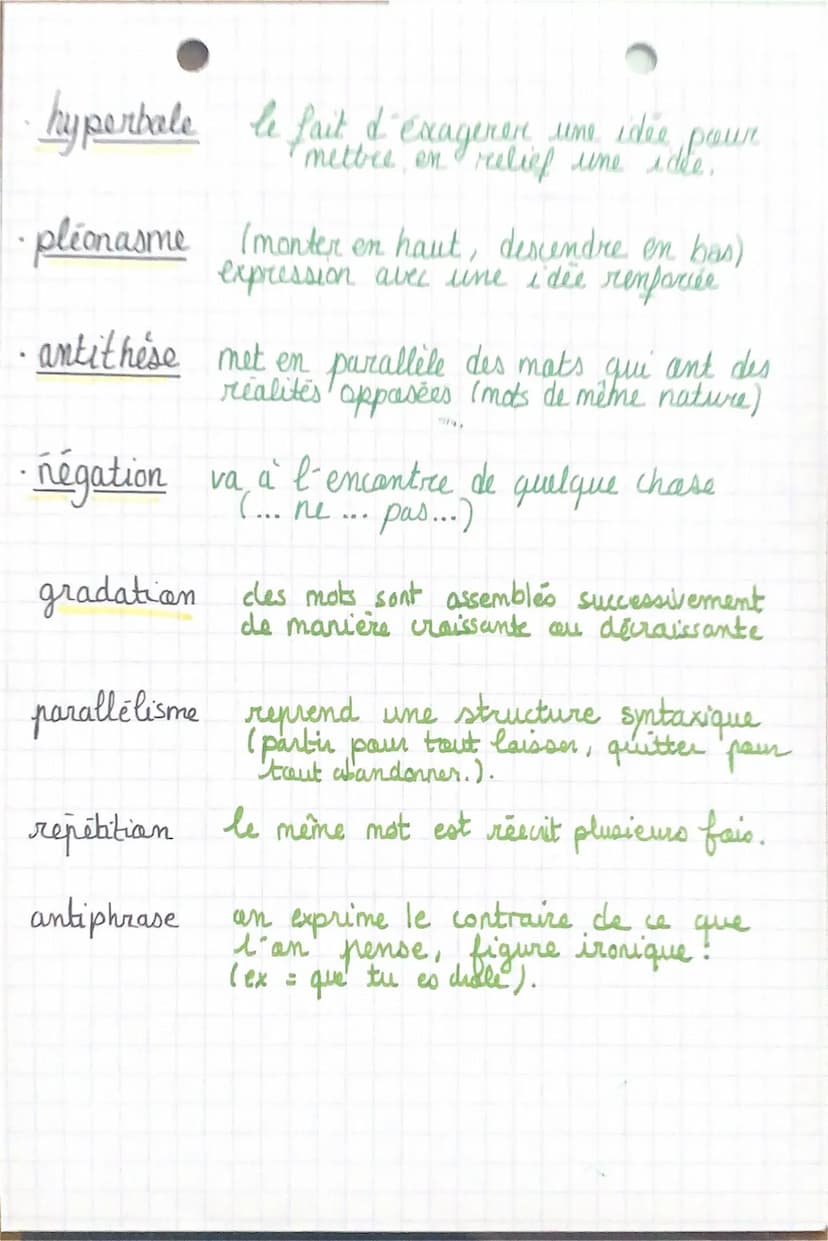 · hyperbole le fait d'exagerer une idée pour
mettre en relief une idée.
· pléonasme (monter en haut, descendre en bas)
expression avec une idée renforcée
· antithèse met en parallèle des mots qui ont des
réalités opposées (mots de même nature)
· négation va à l'encontre de quelque chose
(... ne ... pas...)
gradation des mots sont assemblés successivement
de manière croissante ou décroissante
parallélisme reprend une structure syntaxique
(partir pour tout laisser, quitter pour
tout abandonner.).
répétition le même mot est réecrit plusieurs fois.
antiphrase on exprime le contraire de ce que
l'on pense, figure ironique!
(ex = que tu es drôle).